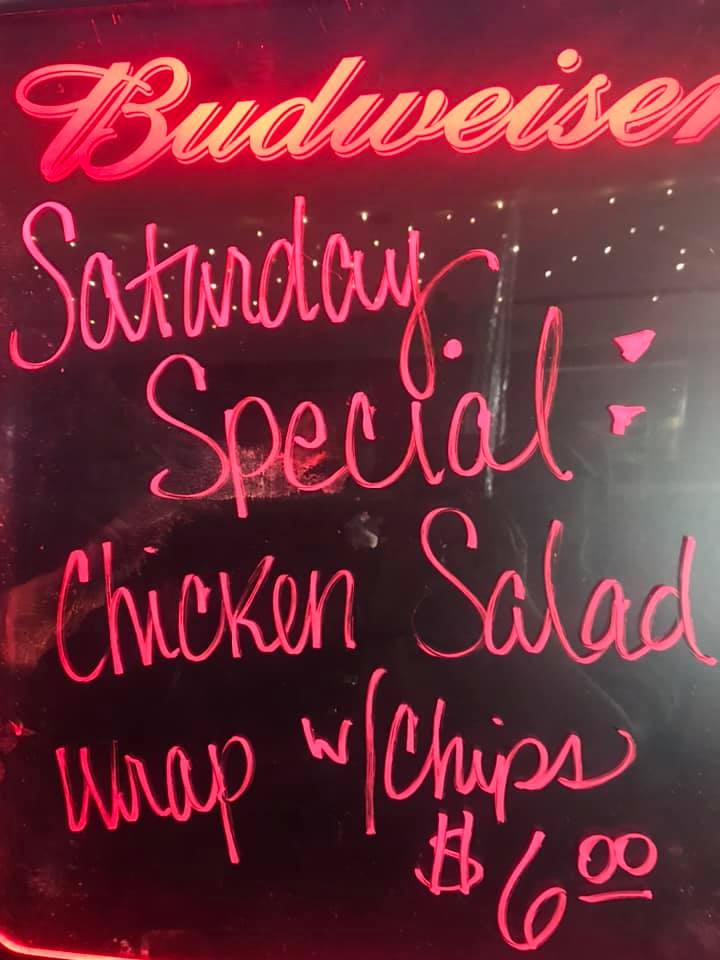 Budweiser
Saturday
Special:
Chicken Salad
Wrap w/Chips
$6.00